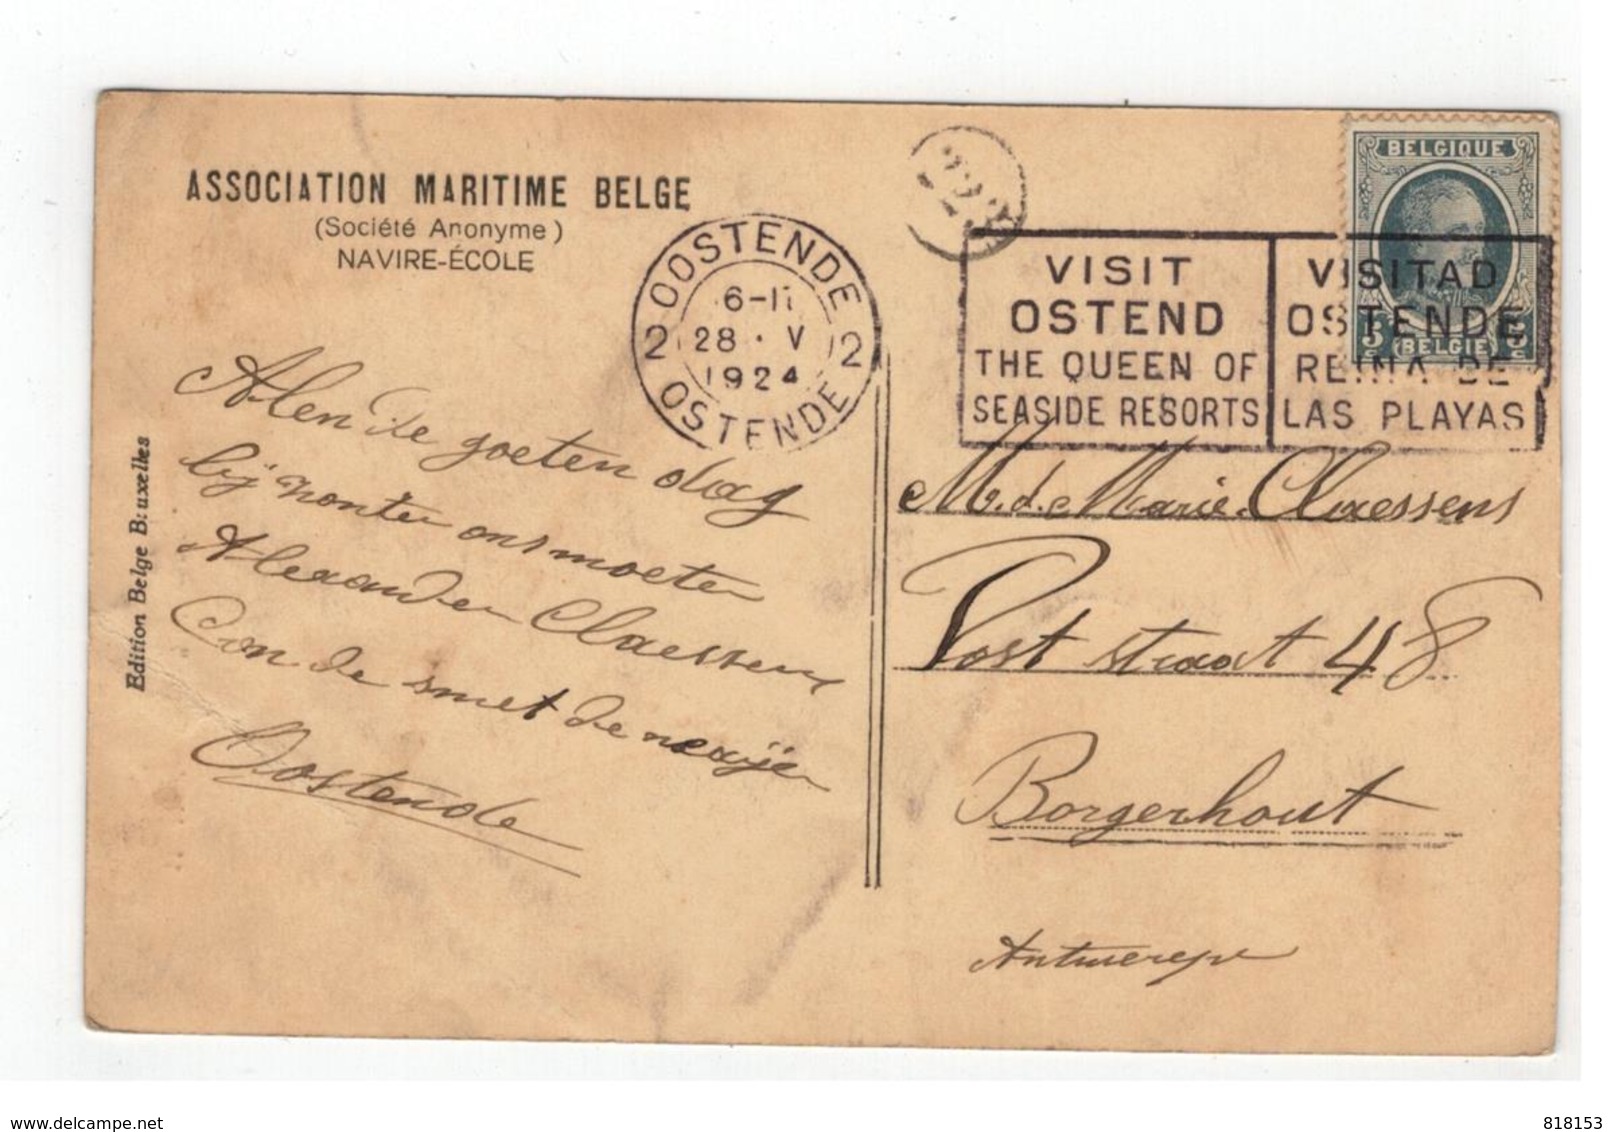 ASSOCIATION MARITIME BELGE
(Société Anonyme)
NAVIRE-ÉCOLE
Edition Belge Bruxelles
OOSTENDE
6-11
28 · V
1924
2 2
OSTENDE
VISIT
OSTEND
THE QUEEN OF
SEASIDE RESORTS
VISITAD
OSTENDE
REINA DE
LAS PLAYAS
BELGIQUE
5 5
(BELGIË)
Alen de goeten dag
bij monte
Alexander Claessens
Con de smet de naeyer
Oostende
Marie Claessens
Post straat 48
Borgerhout
Antwerepe
www.delcampe.net
818153